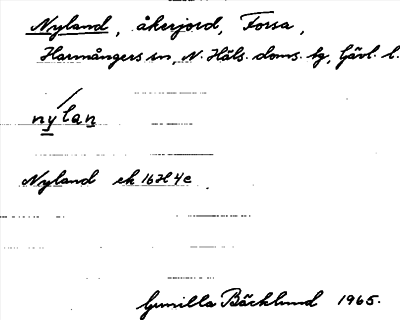 Nyland, åkerjord, Forsa,
Harmångers sn, N. Häls. doms. tg, Gävl. l.
nylan
Nyland ek 16H4e
Gunilla Bäcklund 1965.